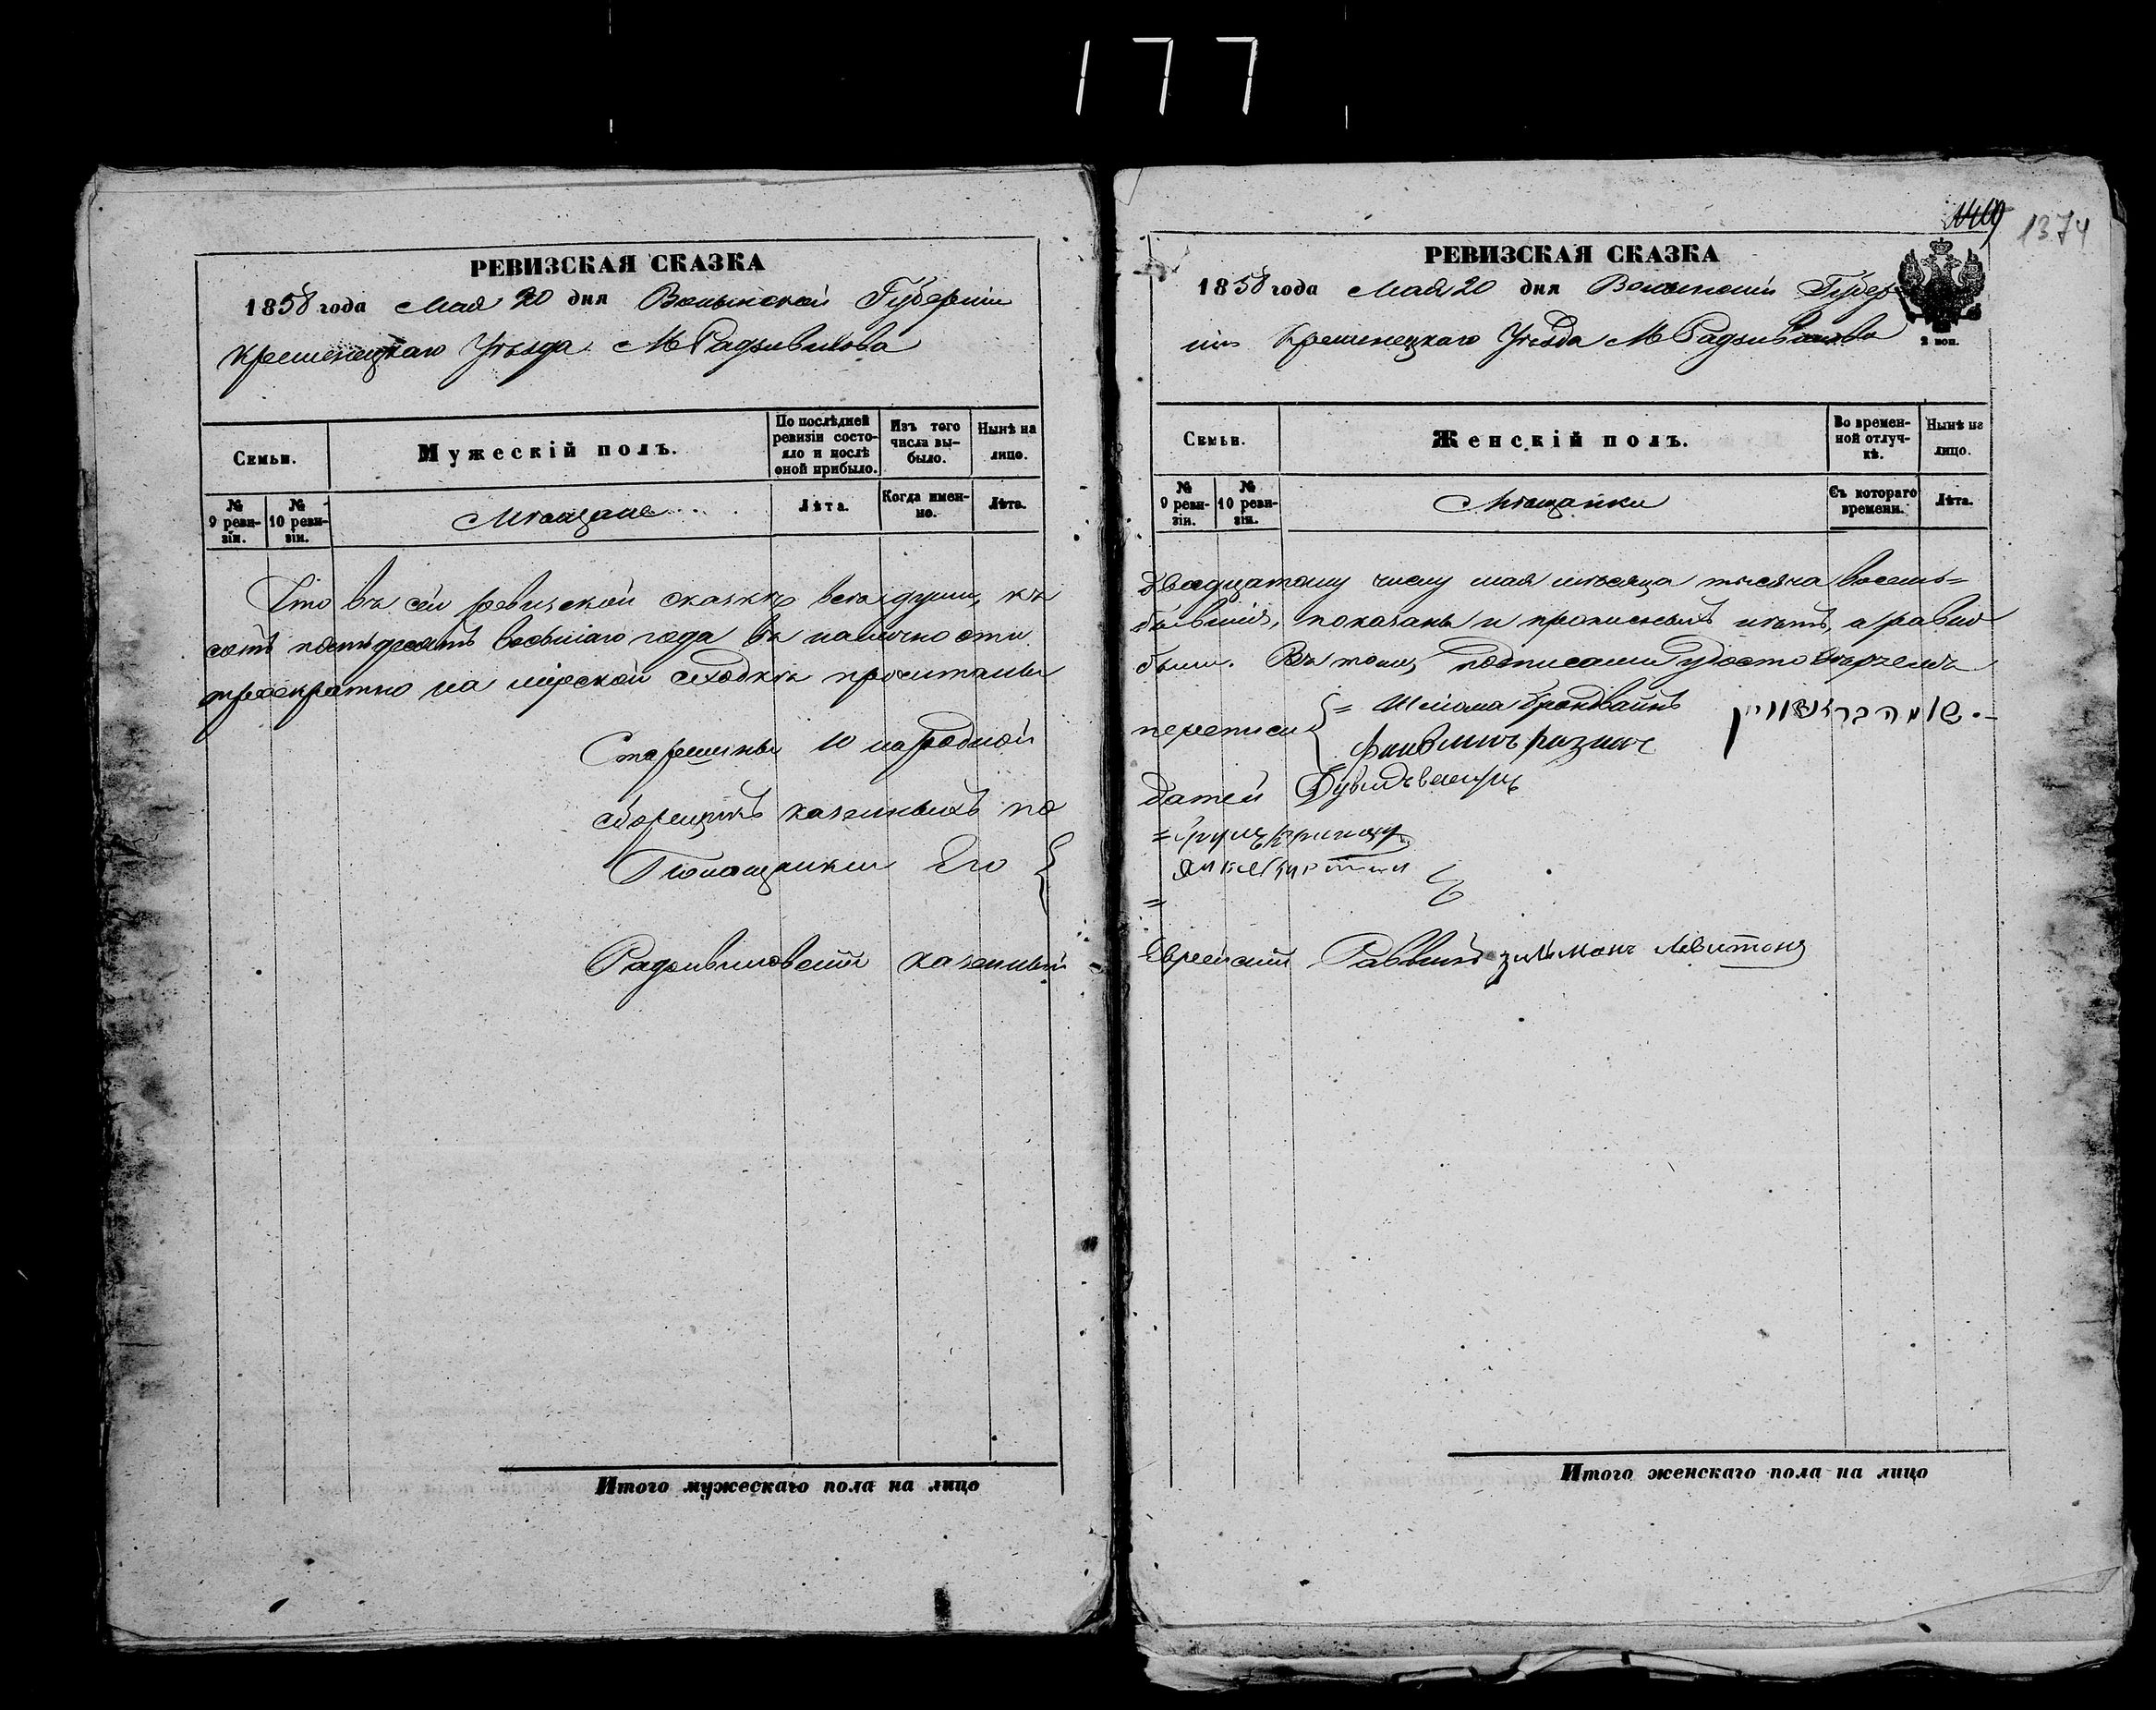 177
РЕВИЗСКАЯ СКАЗКА
1858 года Мая 20 дня Волынской Губерніи
Кременецкаго Уѣзда М Радзивилова
Семьи.
Мужескій полъ.
По послѣдней ревизіи состояло и послѣ оной прибыло.
Изъ того числа выбыло.
Нынѣ на лицо.
№ 9 ревизіи.
№ 10 ревизіи.
Мѣщане
Лѣта.
Когда именно.
Лѣта.
Что въ сей ревизской сказкѣ всѣ души, къ
сотъ пятьдесятъ восьмаго года въ наличности
троекратно на мірской сходкѣ прочитаны
Старшины 10 народной
сборщикъ казенныхъ по
Помощники Его
Радзивиловскій казенный
Итого мужескаго пола на лицо
1374
РЕВИЗСКАЯ СКАЗКА
1858 года Мая 20 дня Волынской Губер
ніи Кременецкаго Уѣзда М Радзивилова
2 коп.
Семьи.
Женскій полъ.
Во временной отлучкѣ.
Нынѣ на лицо.
№ 9 ревизіи.
№ 10 ревизіи.
Мѣщанки
Съ котораго времени.
Лѣта.
двадцатому числу мая мѣсяца тысяча восемь=
бывшія, показаны и прописныхъ нѣтъ, а равно
были. Въ томъ подписами удостовѣряемъ
переписи = Шлиома Брондвайнъ
датей
=
=
Еврейскій Раввинъ зильманъ Левитонъ
Итого женскаго пола на лицо